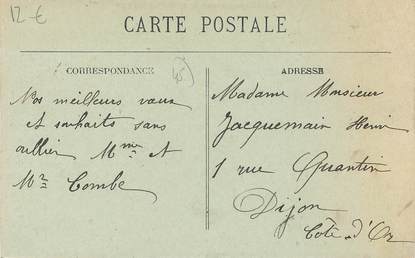 12-€
CARTE POSTALE
CORRESPONDANCE
ADRESSE
Nos meilleurs vœux
et souhaits sans
oublier Mme et
Mr Combe
Madame Monsieur
Jacquemain Henri
1 rue Quantin
Dijon
Côte-d'Or